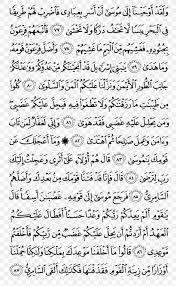 وَلَقَدْ أَوْحَيْنَآ إِلَىٰ مُوسَىٰٓ أَنْ أَسْرِ بِعِبَادِى فَٱضْرِبْ لَهُمْ طَرِيقًا
فِى ٱلْبَحْرِ يَبَسًا لَّا تَخَـٰفُ دَرَكًا وَلَا تَخْشَىٰ ٧٧ فَأَتْبَعَهُمْ فِرْعَوْنُ
بِجُنُودِهِۦ فَغَشِيَهُم مِّنَ ٱلْيَمِّ مَا غَشِيَهُمْ ٧٨ وَأَضَلَّ فِرْعَوْنُ قَوْمَهُۥ
وَمَا هَدَىٰ ٧٩ يَـٰبَنِىٓ إِسْرَٰٓءِيلَ قَدْ أَنجَيْنَـٰكُم مِّنْ عَدُوِّكُمْ وَوَٰعَدْنَـٰكُمْ
جَانِبَ ٱلطُّورِ ٱلْأَيْمَنَ وَنَزَّلْنَا عَلَيْكُمُ ٱلْمَنَّ وَٱلسَّلْوَىٰ ٨٠ كُلُوا۟
مِن طَيِّبَـٰتِ مَا رَزَقْنَـٰكُمْ وَلَا تَطْغَوْا۟ فِيهِ فَيَحِلَّ عَلَيْكُمْ غَضَبِى
وَمَن يَحْلِلْ عَلَيْهِ غَضَبِى فَقَدْ هَوَىٰ ٨١ وَإِنِّى لَغَفَّارٌ لِّمَن تَابَ
وَءَامَنَ وَعَمِلَ صَـٰلِحًا ثُمَّ ٱهْتَدَىٰ ٨٢ ۞ وَمَآ أَعْجَلَكَ عَن
قَوْمِكَ يَـٰمُوسَىٰ ٨٣ قَالَ هُمْ أُو۟لَآءِ عَلَىٰٓ أَثَرِى وَعَجِلْتُ إِلَيْكَ
رَبِّ لِتَرْضَىٰ ٨٤ قَالَ فَإِنَّا قَدْ فَتَنَّا قَوْمَكَ مِنۢ بَعْدِكَ وَأَضَلَّهُمُ
ٱلسَّامِرِىُّ ٨٥ فَرَجَعَ مُوسَىٰٓ إِلَىٰ قَوْمِهِۦ غَضْبَـٰنَ أَسِفًا قَالَ
يَـٰقَوْمِ أَلَمْ يَعِدْكُمْ رَبُّكُمْ وَعْدًا حَسَنًا أَفَطَالَ عَلَيْكُمُ
ٱلْعَهْدُ أَمْ أَرَدتُّمْ أَن يَحِلَّ عَلَيْكُمْ غَضَبٌ مِّن رَّبِّكُمْ فَأَخْلَفْتُم
مَّوْعِدِى ٨٦ قَالُوا۟ مَآ أَخْلَفْنَا مَوْعِدَكَ بِمَلْكِنَا وَلَـٰكِنَّا حُمِّلْنَآ
أَوْزَارًا مِّن زِينَةِ ٱلْقَوْمِ فَقَذَفْنَـٰهَا فَكَذَٰلِكَ أَلْقَى ٱلسَّامِرِىُّ ٨٧